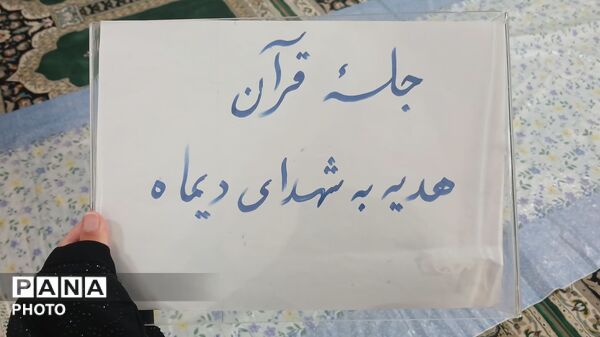 جلسهٔ قرآن
هدیه به شهدای دیماه
PANA
PHOTO